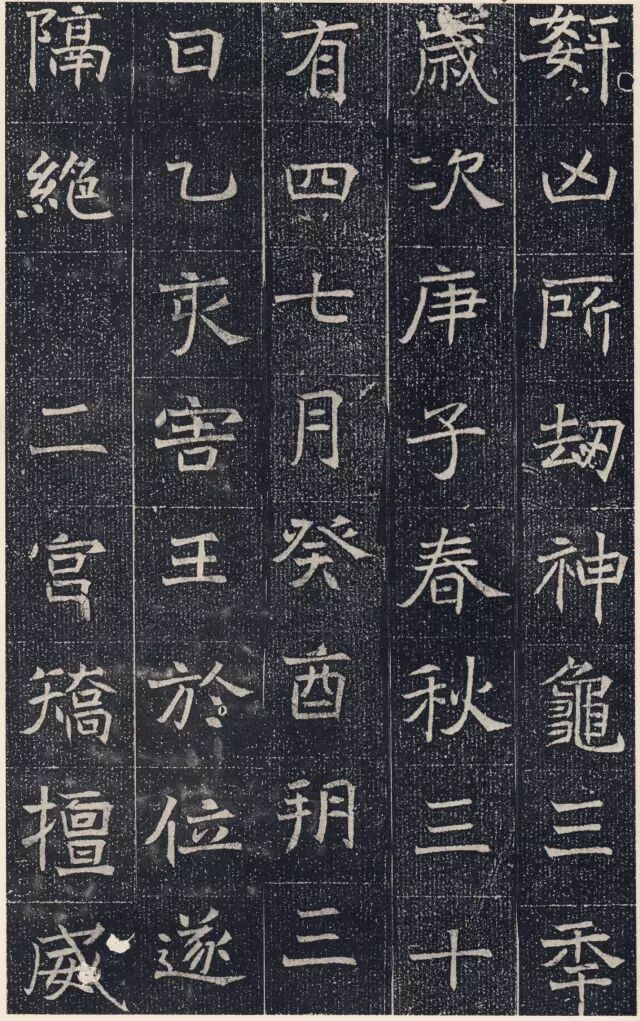 姧凶所刼神龜三秊
歲次庚子春秋三十
有四七月癸酉朔三
日乙亥害王於位遂
隔絕二宮矯擅威